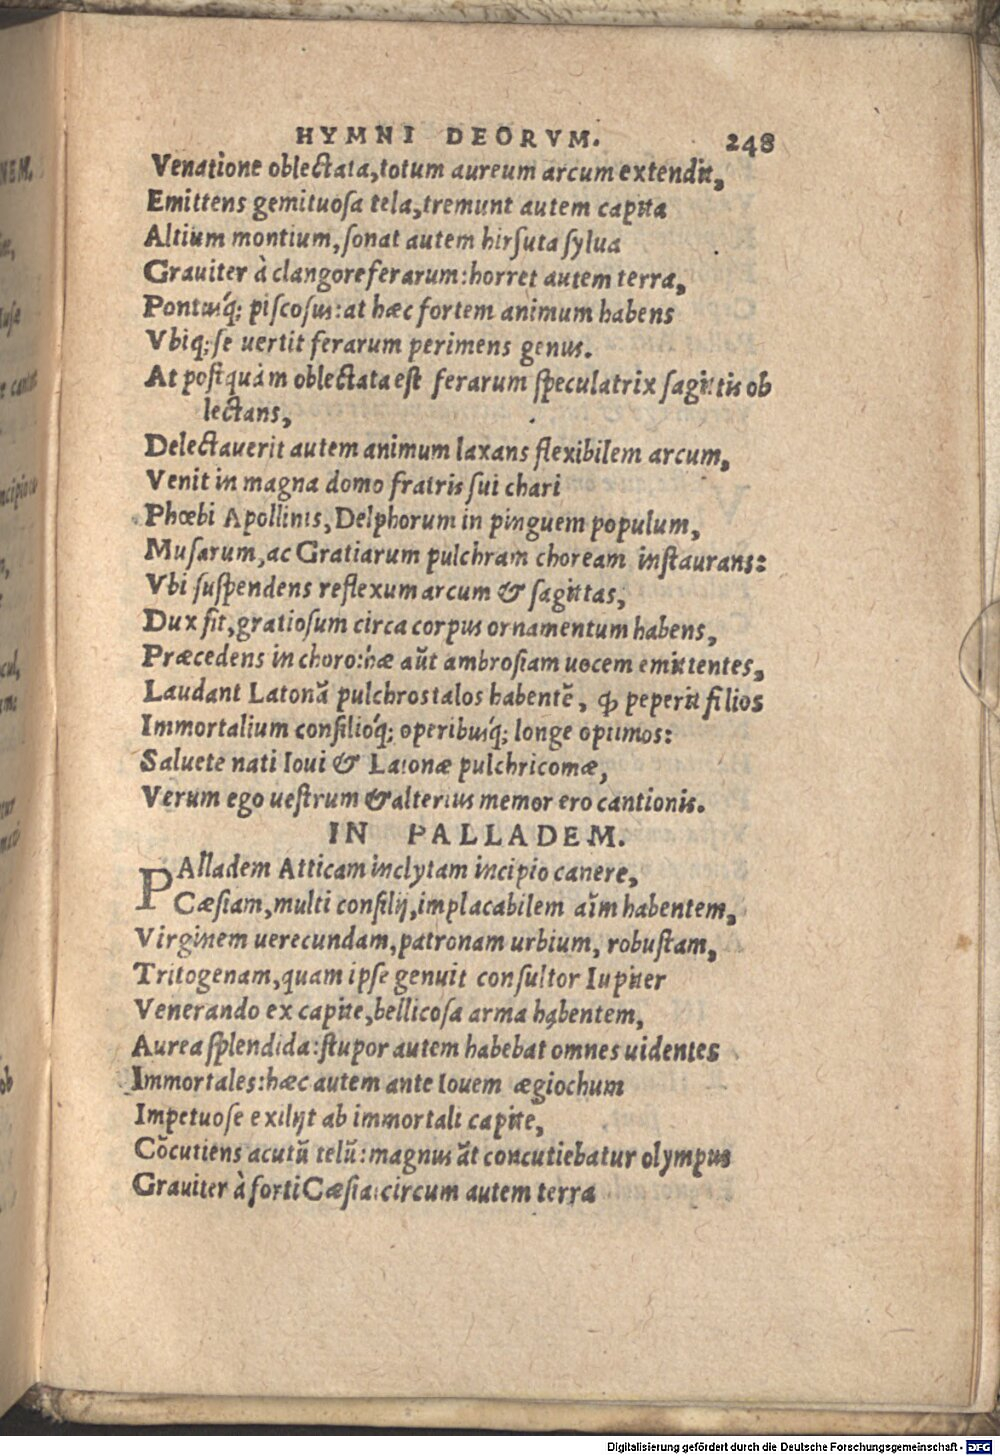 HYMNI DEORVM. 248
Venatione oblectata, totum aureum arcum extendit,
Emittens gemituoſa tela, tremunt autem capita
Altium montium, ſonat autem hirſuta ſylua
Grauiter à clangore ferarum: horret autem terra,
Pontusq́; piſcoſus: at hæc fortem animum habens
Vbiq; ſe uertit ferarum perimens genus.
At poſtquàm oblectata eſt ferarum ſpeculatrix ſagittis ob
lectans,
Delectauerit autem animum laxans flexibilem arcum,
Venit in magna domo fratris ſui chari
Phœbi Apollinis, Delphorum in pinguem populum,
Muſarum, ac Gratiarum pulchram choream inſtaurans:
Vbi ſuſpendens reflexum arcum & ſagittas,
Dux fit, gratioſum circa corpus ornamentum habens,
Præcedens in choro: hæ aũt ambroſiam uocem emittentes,
Laudant Latonã pulchros talos habentẽ, ꝙ peperit filios
Immortalium conſilioq́; operibusq́; longe optimos:
Saluete nati Ioui & Latonæ pulchricomæ,
Verum ego ueſtrum & alterius memor ero cantionis.
IN PALLADEM.
PAlladem Atticam inclytam incipio canere,
Cæſiam, multi conſilij, implacabilem aĩm habentem,
Virginem uerecundam, patronam urbium, robuſtam,
Tritogenam, quam ipſe genuit conſultor Iupiter
Venerando ex capite, bellicoſa arma habentem,
Aurea ſplendida: ſtupor autem habebat omnes uidentes
Immortales: hæc autem ante Iouem ægiochum
Impetuoſe exilijt ab immortali capite,
Cõcutiens acutũ telũ: magnus ãt concutiebatur olympus
Grauiter à forti Cæſia: circum autem terra
Digitalisierung gefördert durch die Deutsche Forschungsgemeinschaft - DFG